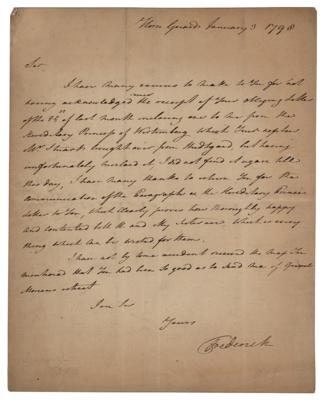 Horse Guards January 3 1798
Sir
I have many excuses to make to You for not
having acknowledged the receipt of Your obliging letter
of the 25 of last month inclosing one to me from the
Hereditary Princess of Wirtemberg which Your
Mr brought me from but having
unfortunately mislaid it, I did not find it again till
this day, I have many thanks to return You for the
communication of the Paragraphs in the Hereditary Princes
letter to You, which clearly proves how thoroughly happy
and contented both He and My Sister are, which is every
thing which can be wished for them.
I have not by some accident received the map You
mentioned that You had been so good as to send me of General
retreat
I am Sir
Yours
Frederick